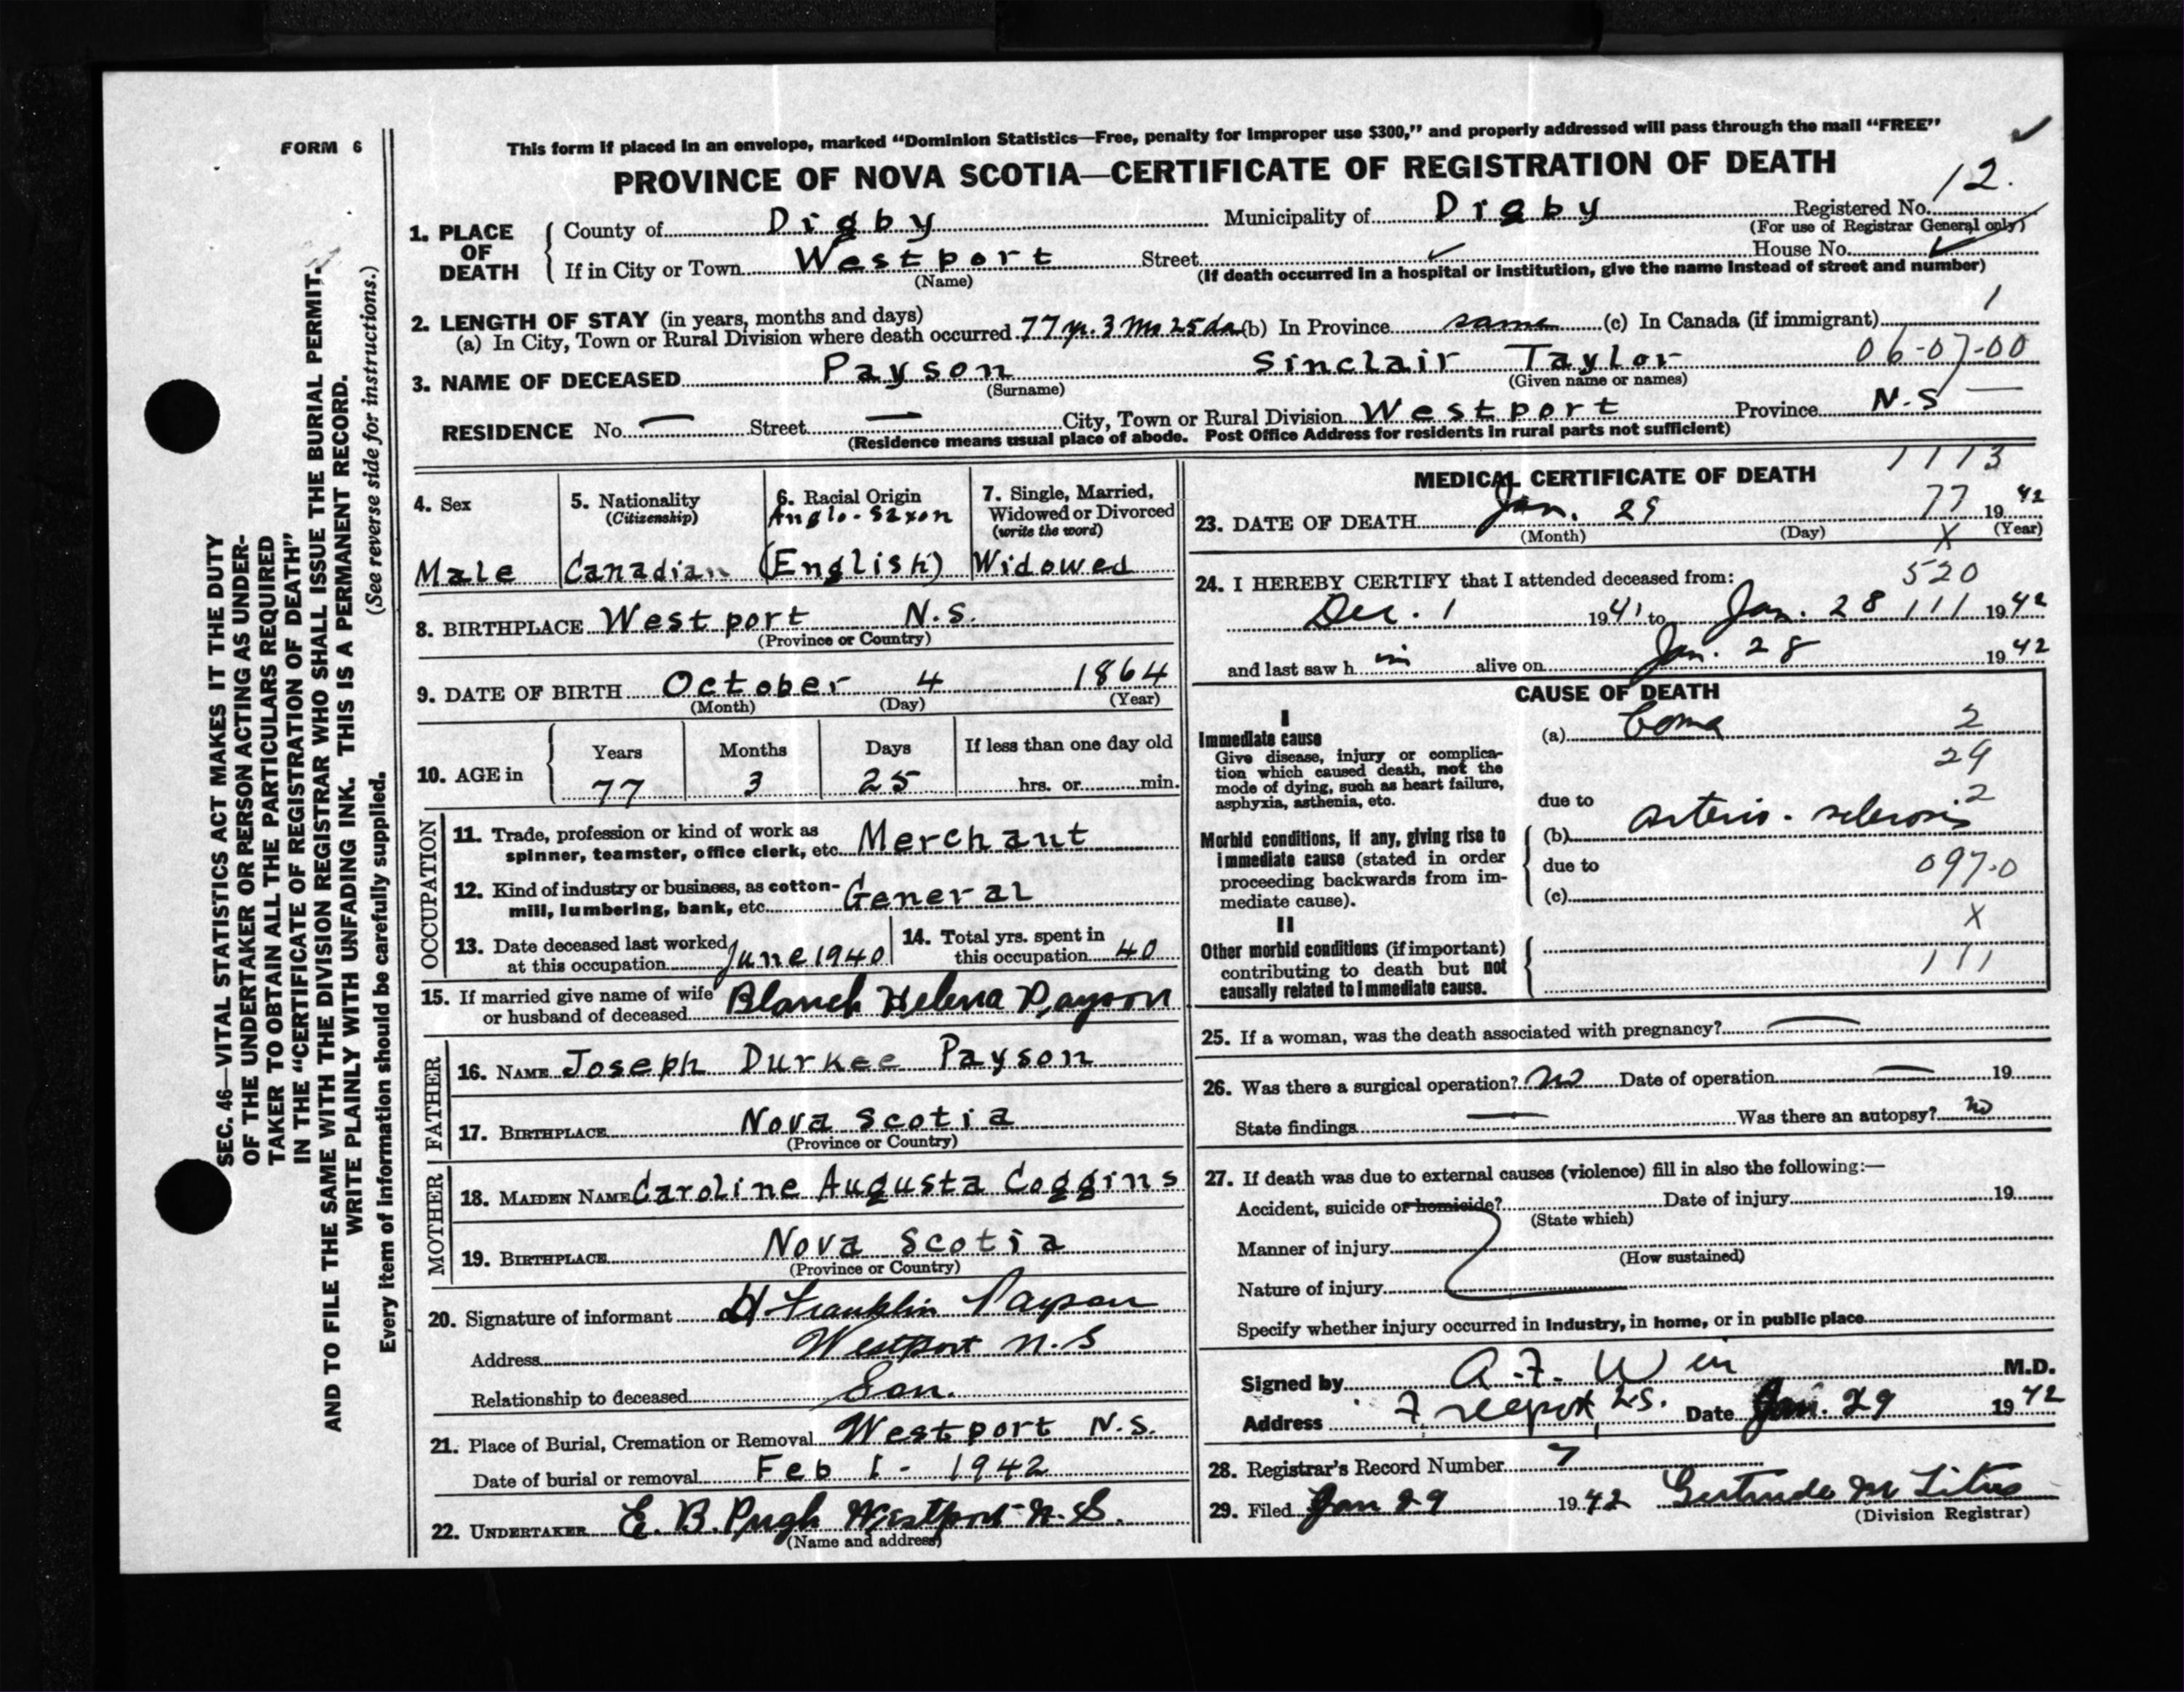 FORM 6
This form if placed in an envelope, marked "Dominion Statistics—Free, penalty for improper use $300," and properly addressed will pass through the mail "FREE"
PROVINCE OF NOVA SCOTIA—CERTIFICATE OF REGISTRATION OF DEATH
12.
1. PLACE OF DEATH
County of Digby Municipality of Digby Registered No.
(For use of Registrar General only)
If in City or Town Westport Street ✓ House No. ✓
(Name) (If death occurred in a hospital or institution, give the name instead of street and number)
2. LENGTH OF STAY (in years, months and days) 1
(a) In City, Town or Rural Division where death occurred 77 yr. 3 Mo 25 da (b) In Province same (c) In Canada (if immigrant)
3. NAME OF DECEASED Payson Sinclair Taylor 06-07-00
(Surname) (Given name or names)
RESIDENCE No. — Street — City, Town or Rural Division Westport Province N.S —
(Residence means usual place of abode. Post Office Address for residents in rural parts not sufficient)
4. Sex
Male
5. Nationality
(Citizenship)
Canadian
6. Racial Origin
Anglo-Saxon
(English)
7. Single, Married,
Widowed or Divorced
(write the word)
Widowed
8. BIRTHPLACE Westport N.S.
(Province or Country)
9. DATE OF BIRTH October 4 1864
(Month) (Day) (Year)
10. AGE in
Years Months Days If less than one day old
77 3 25 hrs. or min.
OCCUPATION
11. Trade, profession or kind of work as
spinner, teamster, office clerk, etc. Merchant
12. Kind of industry or business, as cotton-
mill, lumbering, bank, etc. General
13. Date deceased last worked
at this occupation June 1940
14. Total yrs. spent in
this occupation 40
15. If married give name of wife
or husband of deceased Blanch Helena Payson
FATHER
16. NAME Joseph Durkee Payson
17. BIRTHPLACE Nova Scotia
(Province or Country)
MOTHER
18. MAIDEN NAME Caroline Augusta Coggins
19. BIRTHPLACE Nova Scotia
(Province or Country)
20. Signature of informant H Franklin Payson
Address Westport N.S
Relationship to deceased Son.
21. Place of Burial, Cremation or Removal Westport N.S.
Date of burial or removal Feb 1 - 1942
22. UNDERTAKER E. B. Pugh Westport N.S.
(Name and address)
1113
MEDICAL CERTIFICATE OF DEATH
23. DATE OF DEATH Jan. 29 77 1942
(Month) (Day) (Year)
X
24. I HEREBY CERTIFY that I attended deceased from: 520
Dec. 1 1941 to Jan. 28 111 1942
and last saw h im alive on Jan. 28 1942
CAUSE OF DEATH
I
Immediate cause
Give disease, injury or complica-
tion which caused death, not the
mode of dying, such as heart failure,
asphyxia, asthenia, etc.
(a) Coma 2
29
due to 2
Morbid conditions, if any, giving rise to
immediate cause (stated in order
proceeding backwards from im-
mediate cause).
(b) arterio-sclerosis
due to 097-0
(c)
X
II
Other morbid conditions (if important)
contributing to death but not
causally related to immediate cause.
111
25. If a woman, was the death associated with pregnancy? —
26. Was there a surgical operation? no Date of operation — 19
State findings — Was there an autopsy? no
27. If death was due to external causes (violence) fill in also the following:—
Accident, suicide or homicide? Date of injury 19
(State which)
Manner of injury
(How sustained)
Nature of injury
Specify whether injury occurred in industry, in home, or in public place
Signed by A. F. Weir M.D.
Address Freeport, N.S. Date Jan. 29 1942
28. Registrar's Record Number 7
29. Filed Jan 29 1942 Gertrude M Titus
(Division Registrar)
SEC. 46—VITAL STATISTICS ACT MAKES IT THE DUTY
OF THE UNDERTAKER OR PERSON ACTING AS UNDER-
TAKER TO OBTAIN ALL THE PARTICULARS REQUIRED
IN THE "CERTIFICATE OF REGISTRATION OF DEATH"
AND TO FILE THE SAME WITH THE DIVISION REGISTRAR WHO SHALL ISSUE THE BURIAL PERMIT.
WRITE PLAINLY WITH UNFADING INK. THIS IS A PERMANENT RECORD.
Every item of information should be carefully supplied. (See reverse side for instructions.)